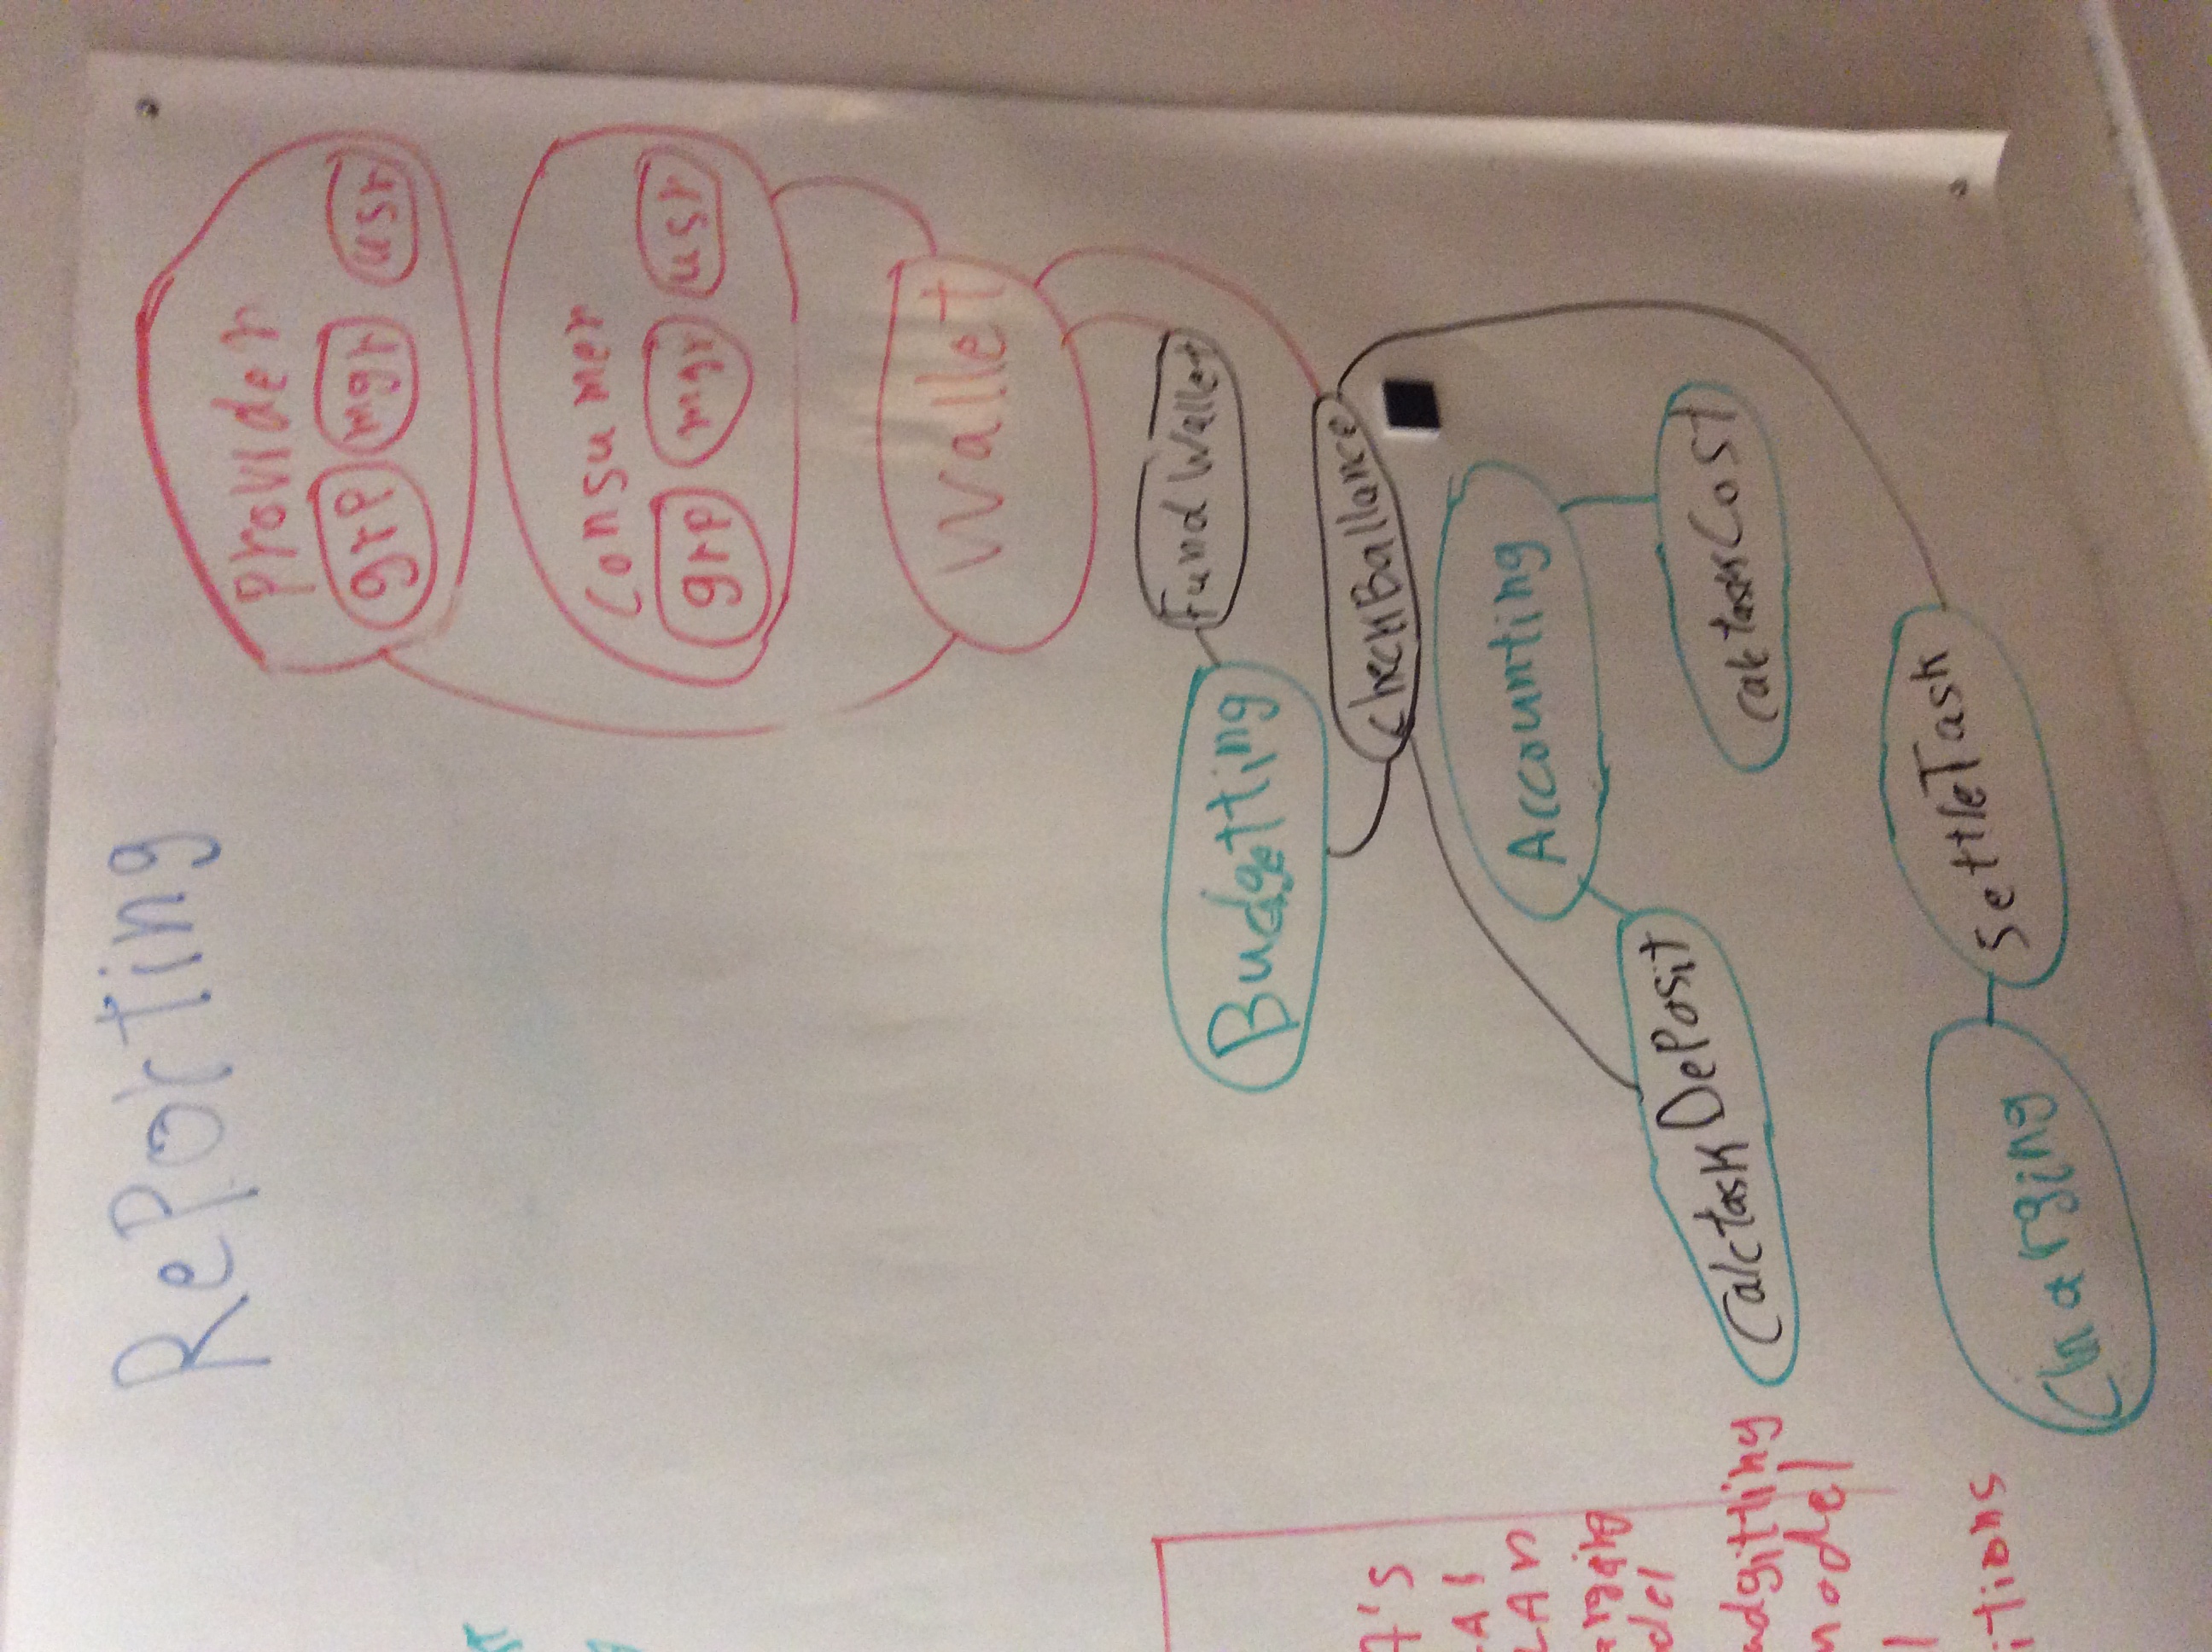 RePorting
Provider
grp mgr usr
Consumer
grp mgr usr
Wallet
Fund Wallet
Budgetting
checkBallance
Accounting
CalctaskDePosit
calctaskCost
SettleTask
Charging
A's
LAn
odel
model
itions